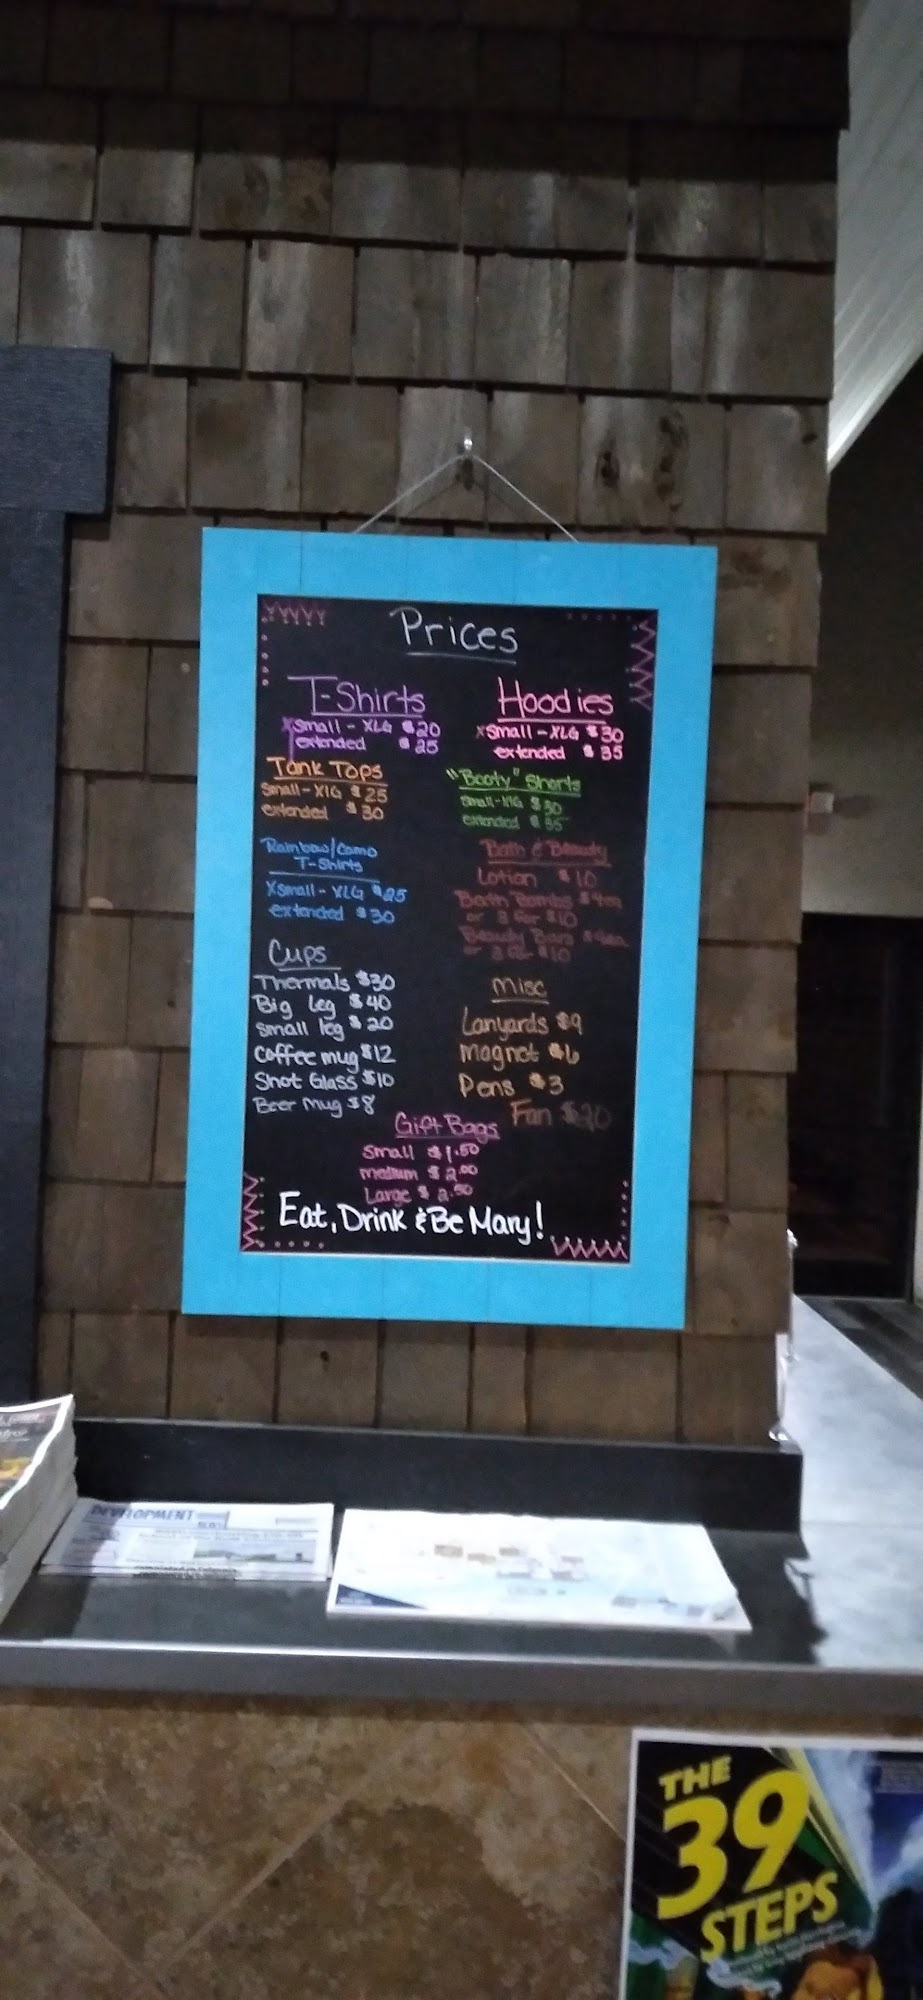 Prices
T-Shirts
xSmall - XLG $20
extended $25
Tank Tops
Small - XLG $25
extended $30
Rainbow/Camo
T-Shirts
XSmall - XLG $25
extended $30
Cups
Thermals $30
Big leg $40
Small leg $20
Coffee mug $12
Shot Glass $10
Beer Mug $8
Hoodies
xSmall - XLG $30
extended $35
"Booty" Shorts
Small-XLG $30
extended $35
Bath & Beauty
Lotion $10
Bath Bombs $4ea
or 3 for $10
Beauty Bars $4ea
or 3 for $10
Misc
Lanyards $9
Magnet $6
Pens $3
Fan $20
Gift Bags
Small $1.50
medium $2.00
Large $2.50
Eat, Drink & Be Mary!
DEVELOPMENT
THE
39
STEPS